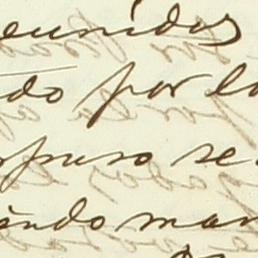 eunidos
do por lo
puso se
endo man